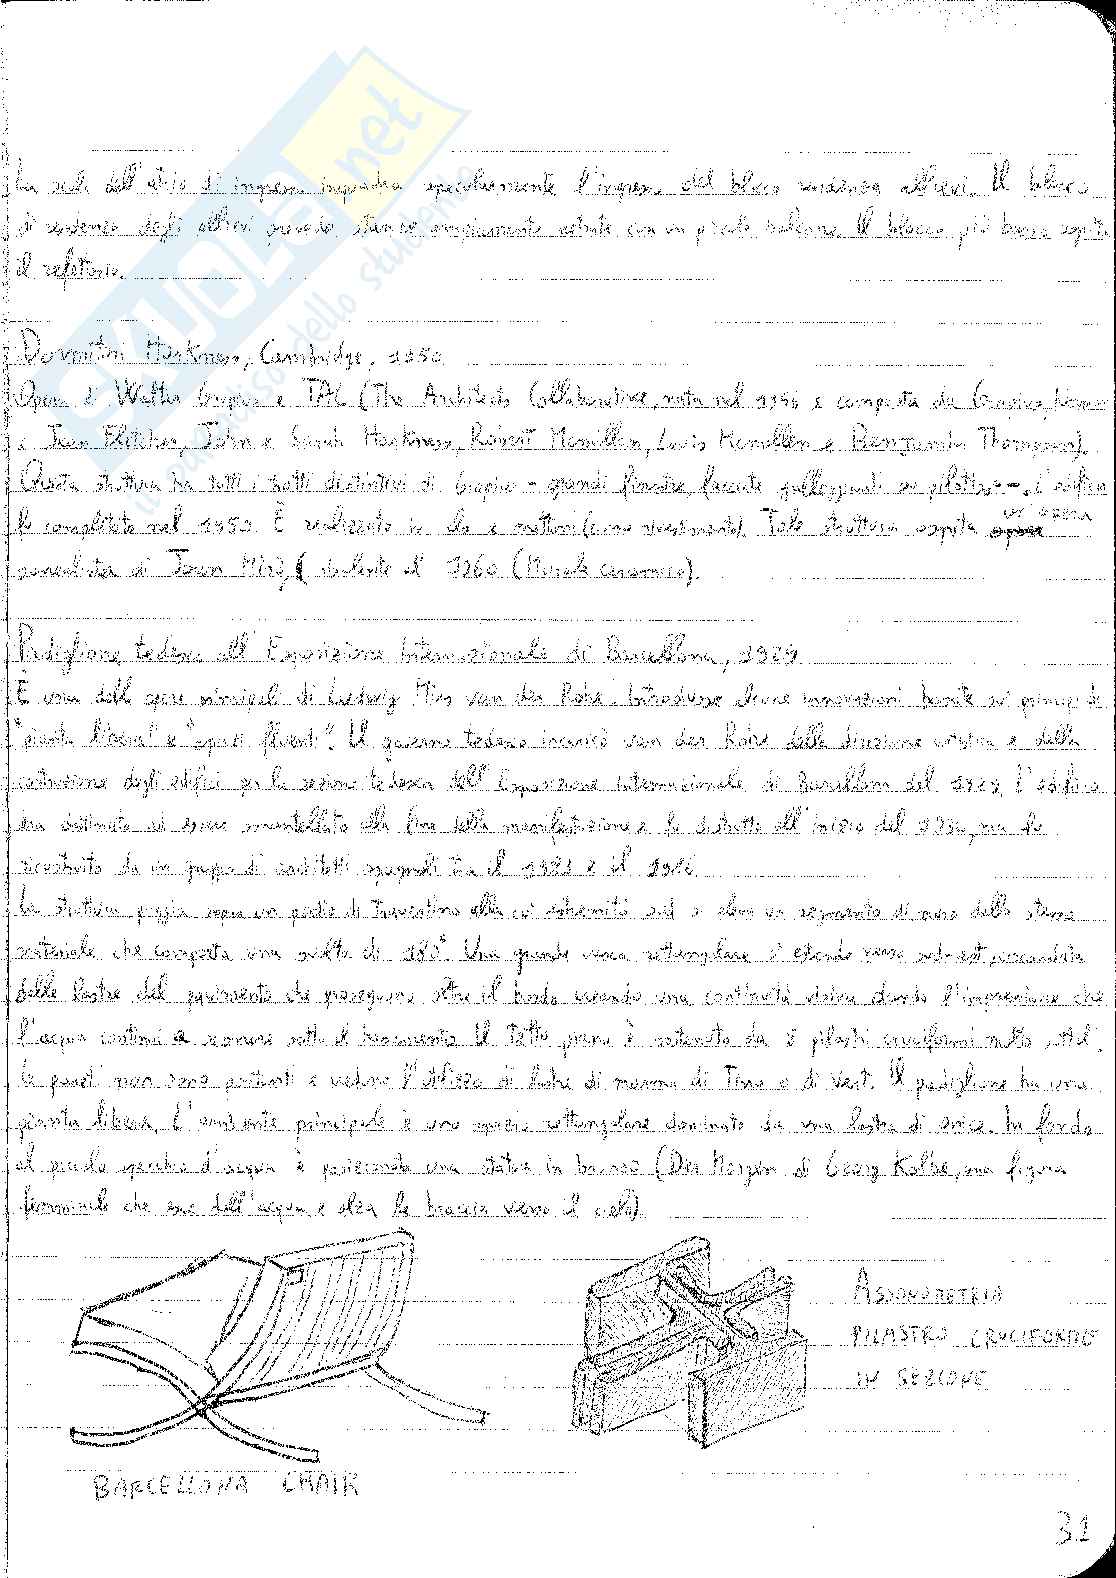 SKUOLA.net
il paradiso dello studente
La sede dell'atrio di ingresso inquadra specularmente l'ingresso del blocco residenza allievi. Il blocco
di residenza degli allievi prevede stanze ampiamente vetrate con un piccolo balcone. Il blocco più basso ospita
il refettorio.
Dormitori Harkness, Cambridge, 1950
Opera di Walter Gropius e TAC (The Architects Collaborative, nata nel 1946 e composta da Gropius, Norman
e Jean Fletcher, John e Sarah Harkness, Robert Mcmillan, Louis Mcmillen e Benjamin Thompson).
Questa struttura ha tutti i tratti distintivi di Gropius - grandi finestre, facciate galleggianti su pilotis - . L'edificio
fu completato nel 1950. È realizzato in cls e mattoni (come rivestimento). Tale struttura ospita un'opera
surrealista di Joan Mirò, risalente al 1960 (Murale ceramico).
Padiglione tedesco all'Esposizione Internazionale di Barcellona, 1929
È una delle opere principali di Ludwig Mies van der Rohe. Introdusse alcune innovazioni basate sui principi di
"pianta libera" e "spazi fluenti". Il governo tedesco incaricò van der Rohe della direzione artistica e della
costruzione degli edifici per la sezione tedesca dell'Esposizione internazionale di Barcellona del 1929. L'edificio
era destinato ad essere smantellato alla fine della manifestazione e fu distrutto all'inizio del 1930, ma fu
ricostruito da un gruppo di architetti spagnoli tra il 1981 e il 1986.
La struttura poggia sopra un podio di Travertino alla cui estremità sud si eleva un segmento di muro dello stesso
materiale che comporta una svolta di 180°. Una grande vasca rettangolare si estende verso sud-est, circondata
dalle lastre del pavimento che proseguono oltre il bordo creando una continuità visiva dando l'impressione che
l'acqua continui a scorrere sotto il basamento. Il tetto piano è sostenuto da 8 pilastri cruciformi molto sottili.
Le pareti non sono portanti e vedono l'utilizzo di lastre di marmo di Tino o di Vert. Il padiglione ha una
pianta libera. L'ambiente principale è uno spazio rettangolare dominato da una lastra di onice. In fondo
al piccolo specchio d'acqua è posizionata una statua in bronzo (Der Morgen di Georg Kolbe, una figura
femminile che esce dall'acqua e alza le braccia verso il cielo)
BARCELLONA CHAIR
ASSONOMETRIA
PILASTRO CRUCIFORME
IN SEZIONE
31